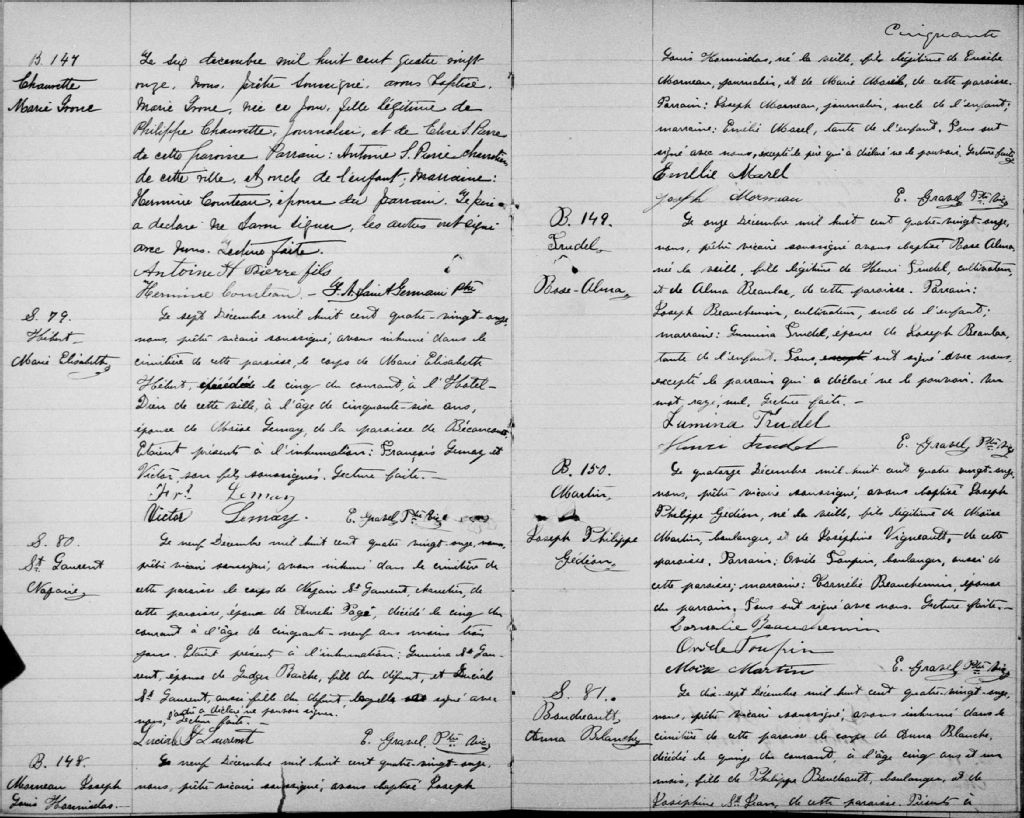 B. 147
Chauvette
Marie Ivone
Le six decembre mil huit cent quatre vingt
onze, Nous, prêtre soussigné, avons baptisé
Marie Ivone, née ce jour, fille légitime de
Philippe Chauvette, journalier, et de Elise S. Pierre
de cette paroisse Parrain: Antoine S. Pierre charretier
de cette ville, et oncle de l'enfant; marraine:
Hermine Courteau, épouse du parrain. Le père
a déclaré ne savoir signer, les autres ont signé
avec nous. Lecture faite.
Antoine St Pierre fils
Hermine Courteau — Saint Germain Ptre
S. 79.
Hébert
Marie Elisabeth
Le sept Décembre mil huit cent quatre-vingt-onze,
nous, prêtre vicaire soussigné, avons inhumé dans le
cimetière de cette paroisse, le corps de Marie Elisabeth
Hébert, décédée le cinq du courant, à l'Hôtel-
Dieu de cette ville, à l'âge de cinquante-six ans,
épouse de Moïse Lemay, de la paroisse de Bécancour.
Etaient présents à l'inhumation: François Lemay et
Victor, son fils, soussignés. Lecture faite. —
Lemay
Victor Lemay. E. Gravel Ptre Vic.
S. 80.
St. Laurent
Nazaire
Le neuf Décembre mil huit cent quatre vingt-onze, nous,
prêtre vicaire soussigné, avons inhumé dans le cimetière de
cette paroisse le corps de Nazaire St Laurent, charretier, de
cette paroisse, époux de Aurélie Pagé, décédé le cinq du
courant à l'âge de cinquante-neuf ans moins trois
jours. Etait présent à l'inhumation: St Lau-
rent, épouse de fille du défunt, et
St Laurent, aussi fils du défunt, signé avec
nous, l'autre a déclaré ne pouvoir signer.
Lecture faite. —
St Laurent E. Gravel, Ptre Vic.
B. 148.
Morneau Joseph
Louis Hormisdas. —
Le neuf Décembre mil huit cent quatre-vingt-onze,
nous, prêtre vicaire soussigné, avons baptisé Joseph
Cinquante
Louis Hormisdas, né la veille, fils légitime de Eusèbe
Morneau, journalier, et de Marie de cette paroisse.
Parrain: Joseph Morneau, journalier, oncle de l'enfant;
marraine: Emélie Marel, tante de l'enfant. Tous ont
signé avec nous, excepté le père qui a déclaré ne le pouvoir. Lecture faite
Emélie Marel
Joseph Morneau E. Gravel Ptre Vic
B. 149.
Trudel,
Rose-Alma,
Le onze Décembre mil huit cent quatre-vingt-onze,
nous, prêtre vicaire soussigné avons baptisé Rose Alma,
née la veille, fille légitime de Henri Trudel, cultivateur,
et de Alma Beaulac, de cette paroisse. Parrain:
Joseph Beauchemin, cultivateur, oncle de l'enfant;
marraine: Trudel, épouse de Joseph Beaulac,
tante de l'enfant. Tous excepté ont signé avec nous,
excepté le parrain qui a déclaré ne le pouvoir. Un
mot rayé, nul. Lecture faite. —
Trudel
Henri Trudel E. Gravel, Ptre Vic
B. 150.
Martin,
Joseph Philippe
Gédéon,
Le quatorze Décembre mil-huit cent quatre vingt-onze,
nous, prêtre vicaire soussigné, avons baptisé Joseph
Philippe Gédéon, né la veille, fils légitime de Moïse
Martin, boulanger, et de Joséphine Vigneault, de cette
paroisse. Parrain: Ovide Toupin, boulanger, aussi de
cette paroisse; marraine: Cornélie Beauchemin, épouse
du parrain. Tous ont signé avec nous. Lecture faite. —
Cornélie Beauchemin
Ovide Toupin
Moïse Martin E. Gravel, Ptre Vic
S. 81.
Boudreault,
Anna Blanche
Le dix-sept Décembre mil huit cent quatre-vingt-onze,
nous, prêtre vicaire soussigné, avons inhumé dans le
cimetière de cette paroisse le corps de Anna Blanche,
décédée le quinze du courant, à l'âge cinq ans et un
mois, fille de Philippe Boudreault, boulanger, et de
Joséphine St Jean, de cette paroisse. Présents à